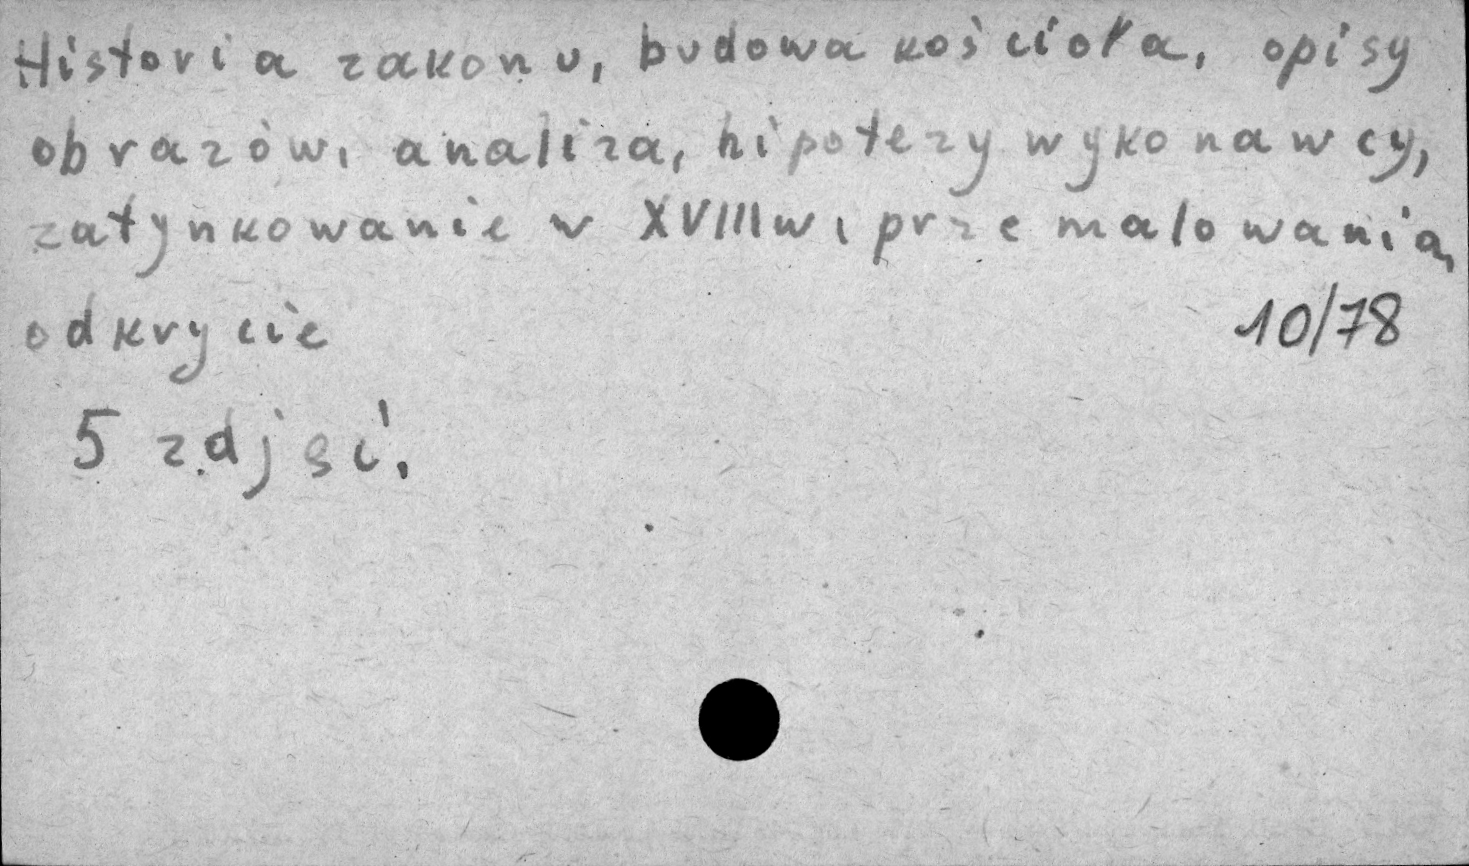 Historia zakonu, budowa kościoła, opisy
obrazów, analiza, hipotezy wykonawcy,
zatynkowanie w XVIIIw, przemalowania,
odkrycie
10/78
5 zdjęć.